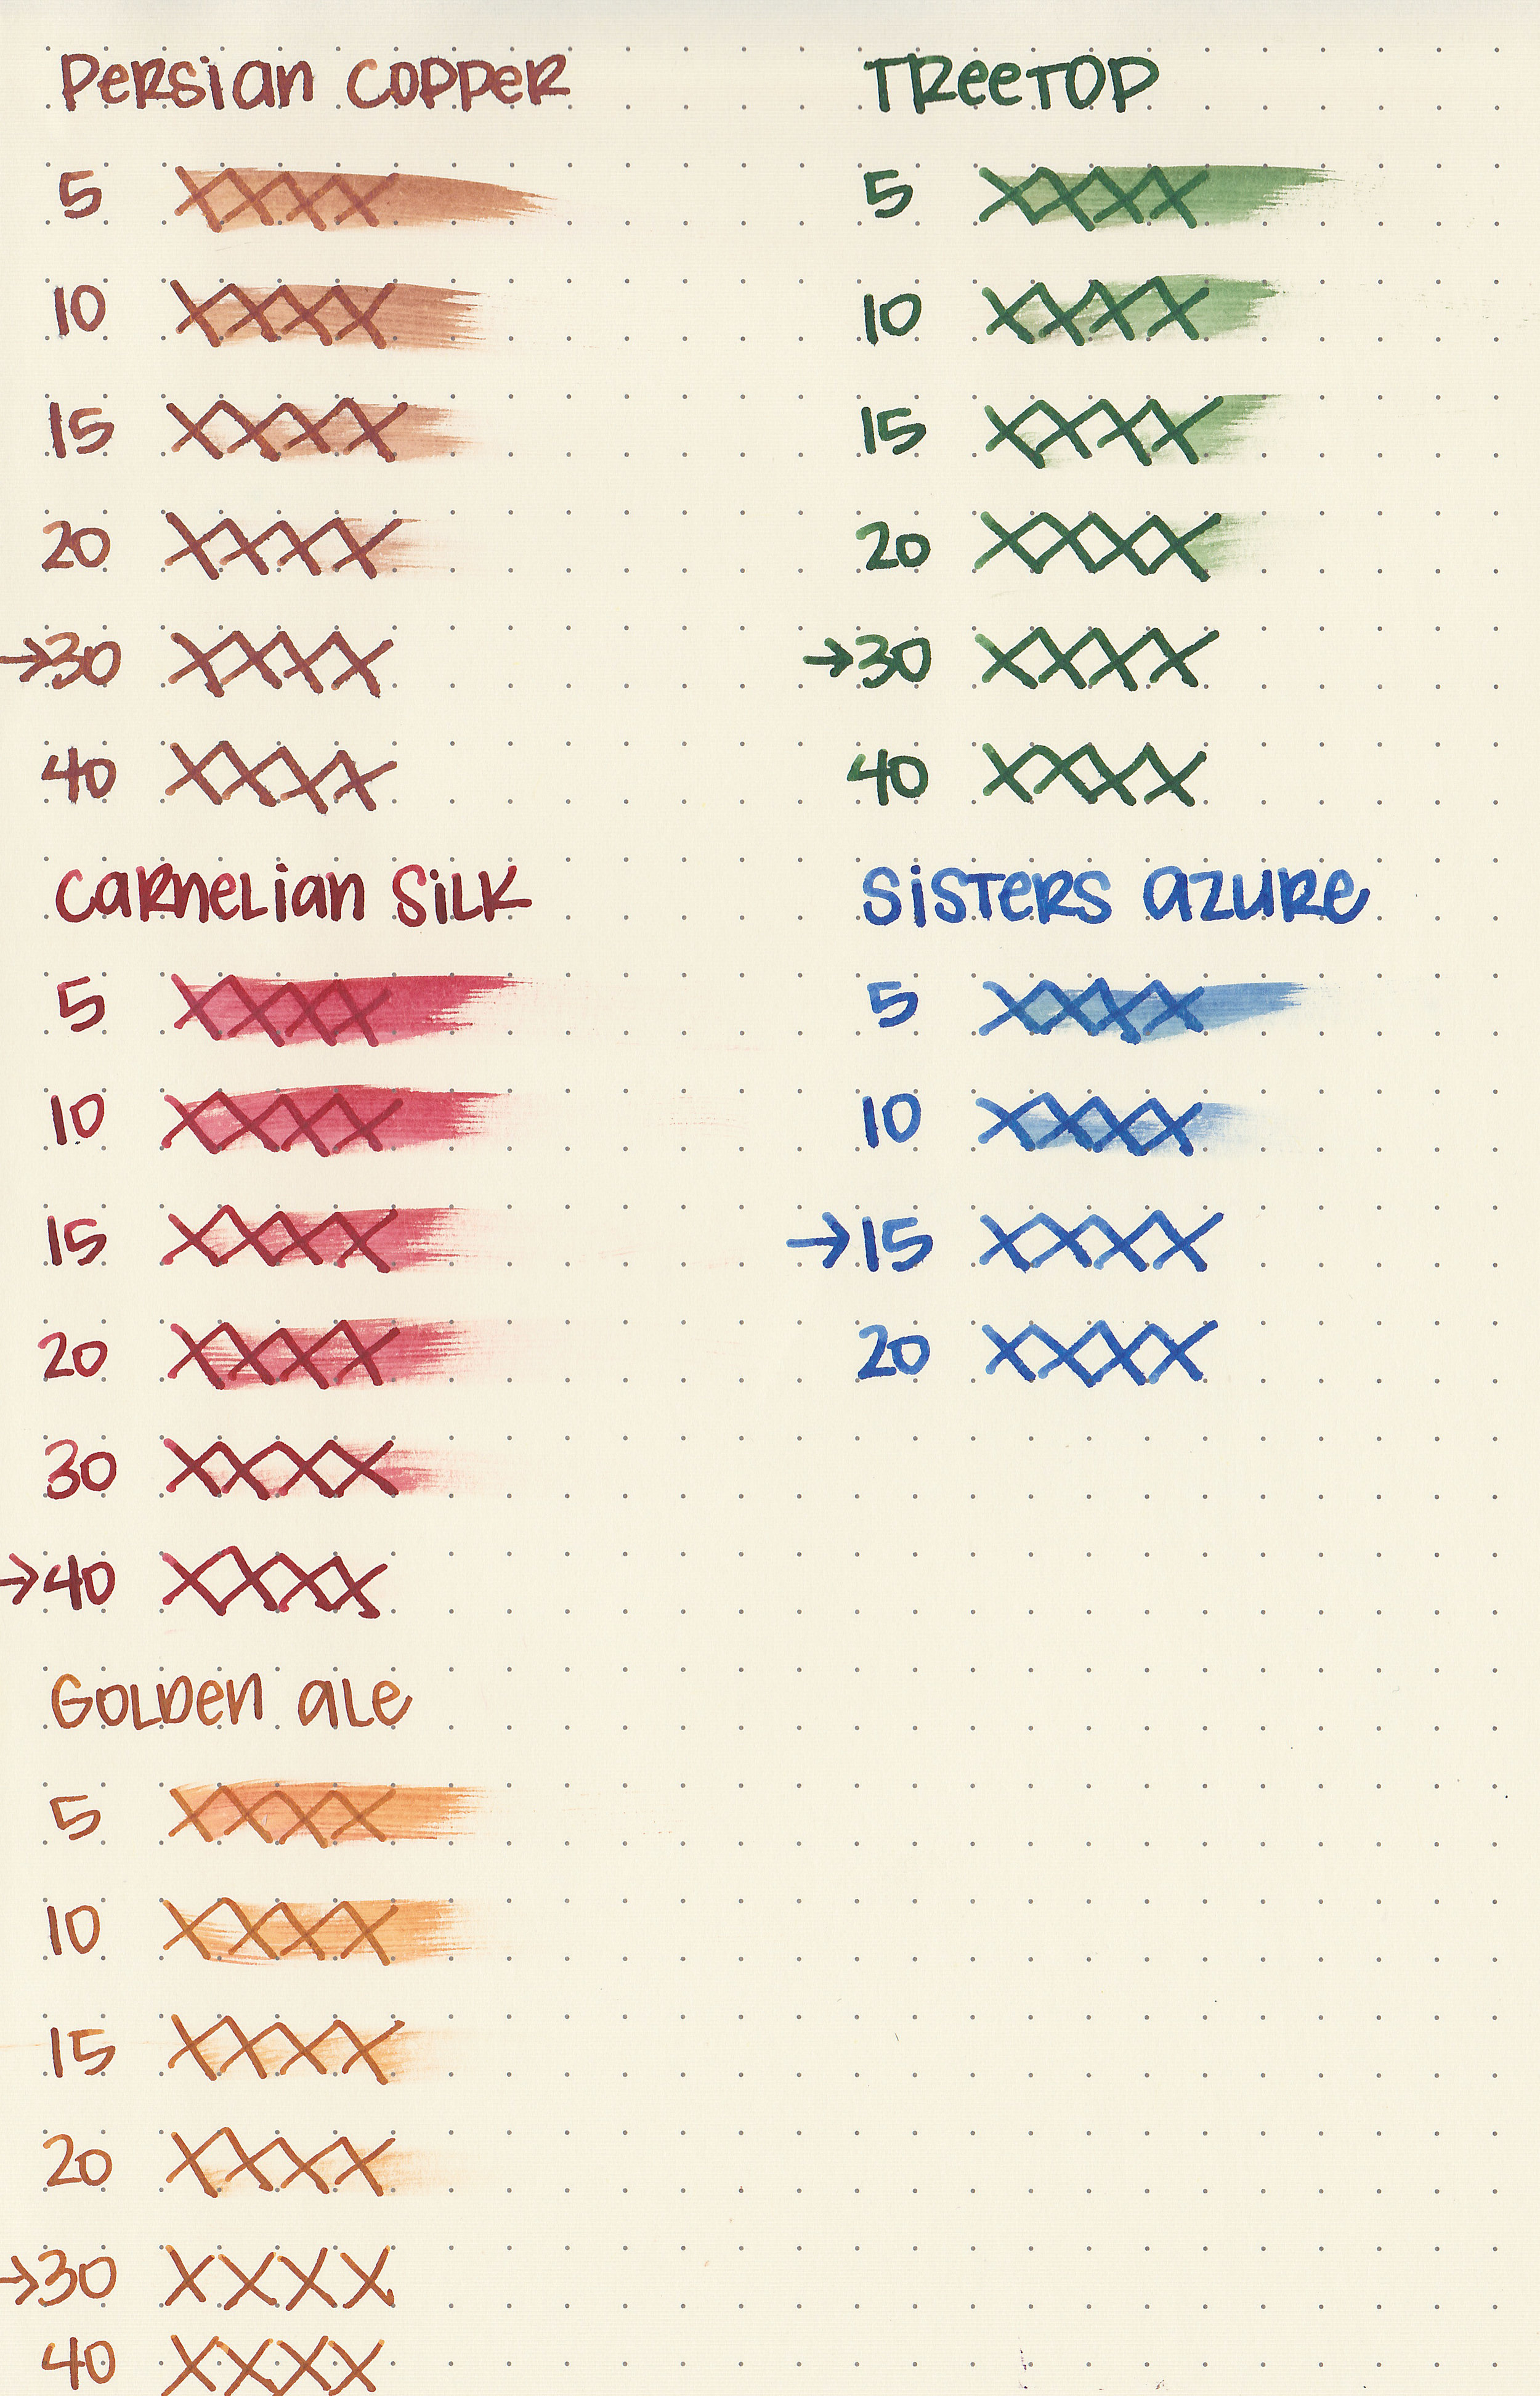 Persian Copper
5 XXXX
10 XXXX
15 XXXX
20 XXXX
→30 XXXX
40 XXXX
Carnelian Silk
5 XXXX
10 XXXX
15 XXXX
20 XXXX
30 XXXX
→40 XXXX
Golden Ale
5 XXXX
10 XXXX
15 XXXX
20 XXXX
→30 XXXX
40 XXXX
Treetop
5 XXXX
10 XXXX
15 XXXX
20 XXXX
→30 XXXX
40 XXXX
Sisters Azure
5 XXXX
10 XXXX
→15 XXXX
20 XXXX